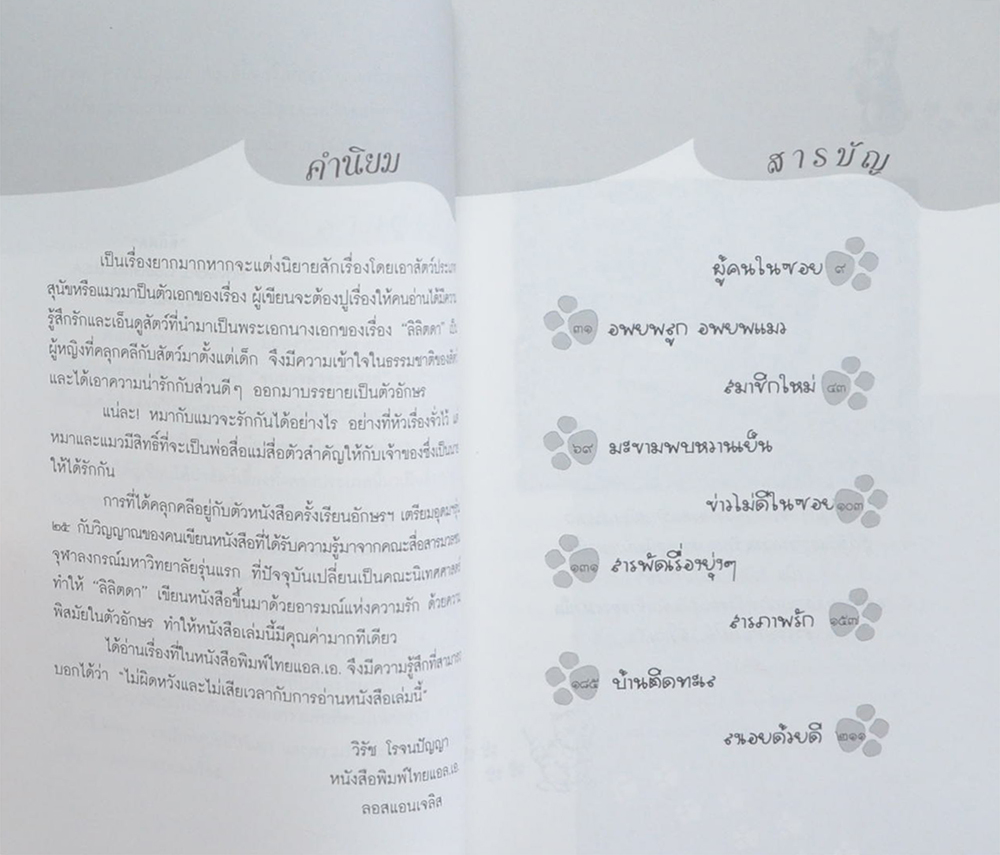 คำนิยม
เป็นเรื่องยากมากหากจะแต่งนิยายสักเรื่องโดยเอาสัตว์ประเภท
สุนัขหรือแมวมาเป็นตัวเอกของเรื่อง ผู้เขียนจะต้องปูเรื่องให้คนอ่านได้มีความ
รู้สึกรักและเอ็นดูสัตว์ที่นำมาเป็นพระเอกนางเอกของเรื่อง "ลิลิตดา"
ผู้หญิงที่คลุกคลีกับสัตว์มาตั้งแต่เด็ก จึงมีความเข้าใจในธรรมชาติของสัตว์
และได้เอาความน่ารักกับส่วนดีๆ ออกมาบรรยายเป็นตัวอักษร
แน่ละ! หมากับแมวจะรักกันได้อย่างไร อย่างที่หัวเรื่องจั่วไว้
หมาและแมวมีสิทธิ์ที่จะเป็นพ่อสื่อแม่สื่อตัวสำคัญให้กับเจ้าของซึ่งเป็น
ให้ได้รักกัน
การที่ได้คลุกคลีอยู่กับตัวหนังสือครั้งเรียนอักษรฯ เตรียมอุดมฯ
๒๕ กับวิญญาณของคนเขียนหนังสือที่ได้รับความรู้มาจากคณะสื่อสารมวลชน
จุฬาลงกรณ์มหาวิทยาลัยรุ่นแรก ที่ปัจจุบันเปลี่ยนเป็นคณะนิเทศศาสตร์
ทำให้ "ลิลิตดา" เขียนหนังสือขึ้นมาด้วยอารมณ์แห่งความรัก ด้วยความ
พิสมัยในตัวอักษร ทำให้หนังสือเล่มนี้มีคุณค่ามากทีเดียว
ได้อ่านเรื่องที่ในหนังสือพิมพ์ไทยแอล.เอ. จึงมีความรู้สึกที่สามารถ
บอกได้ว่า "ไม่ผิดหวังและไม่เสียเวลากับการอ่านหนังสือเล่มนี้"
วิรัช โรจนปัญญา
หนังสือพิมพ์ไทยแอล.เอ.
ลอสแอนเจลิส
สารบัญ
ผู้คนในซอย ๙
๓๑ อพยพลูก อพยพแมว
สมาชิกใหม่ ๔๓
๖๙ มะขามพบหวานเย็น
ข่าวไม่ดีในซอย ๑๐๓
๑๓๑ สารพัดเรื่องยุ่งๆ
สารภาพรัก ๑๕๗
๑๘๕ บ้านติดทะเล
ลงเอยด้วยดี ๒๑๑